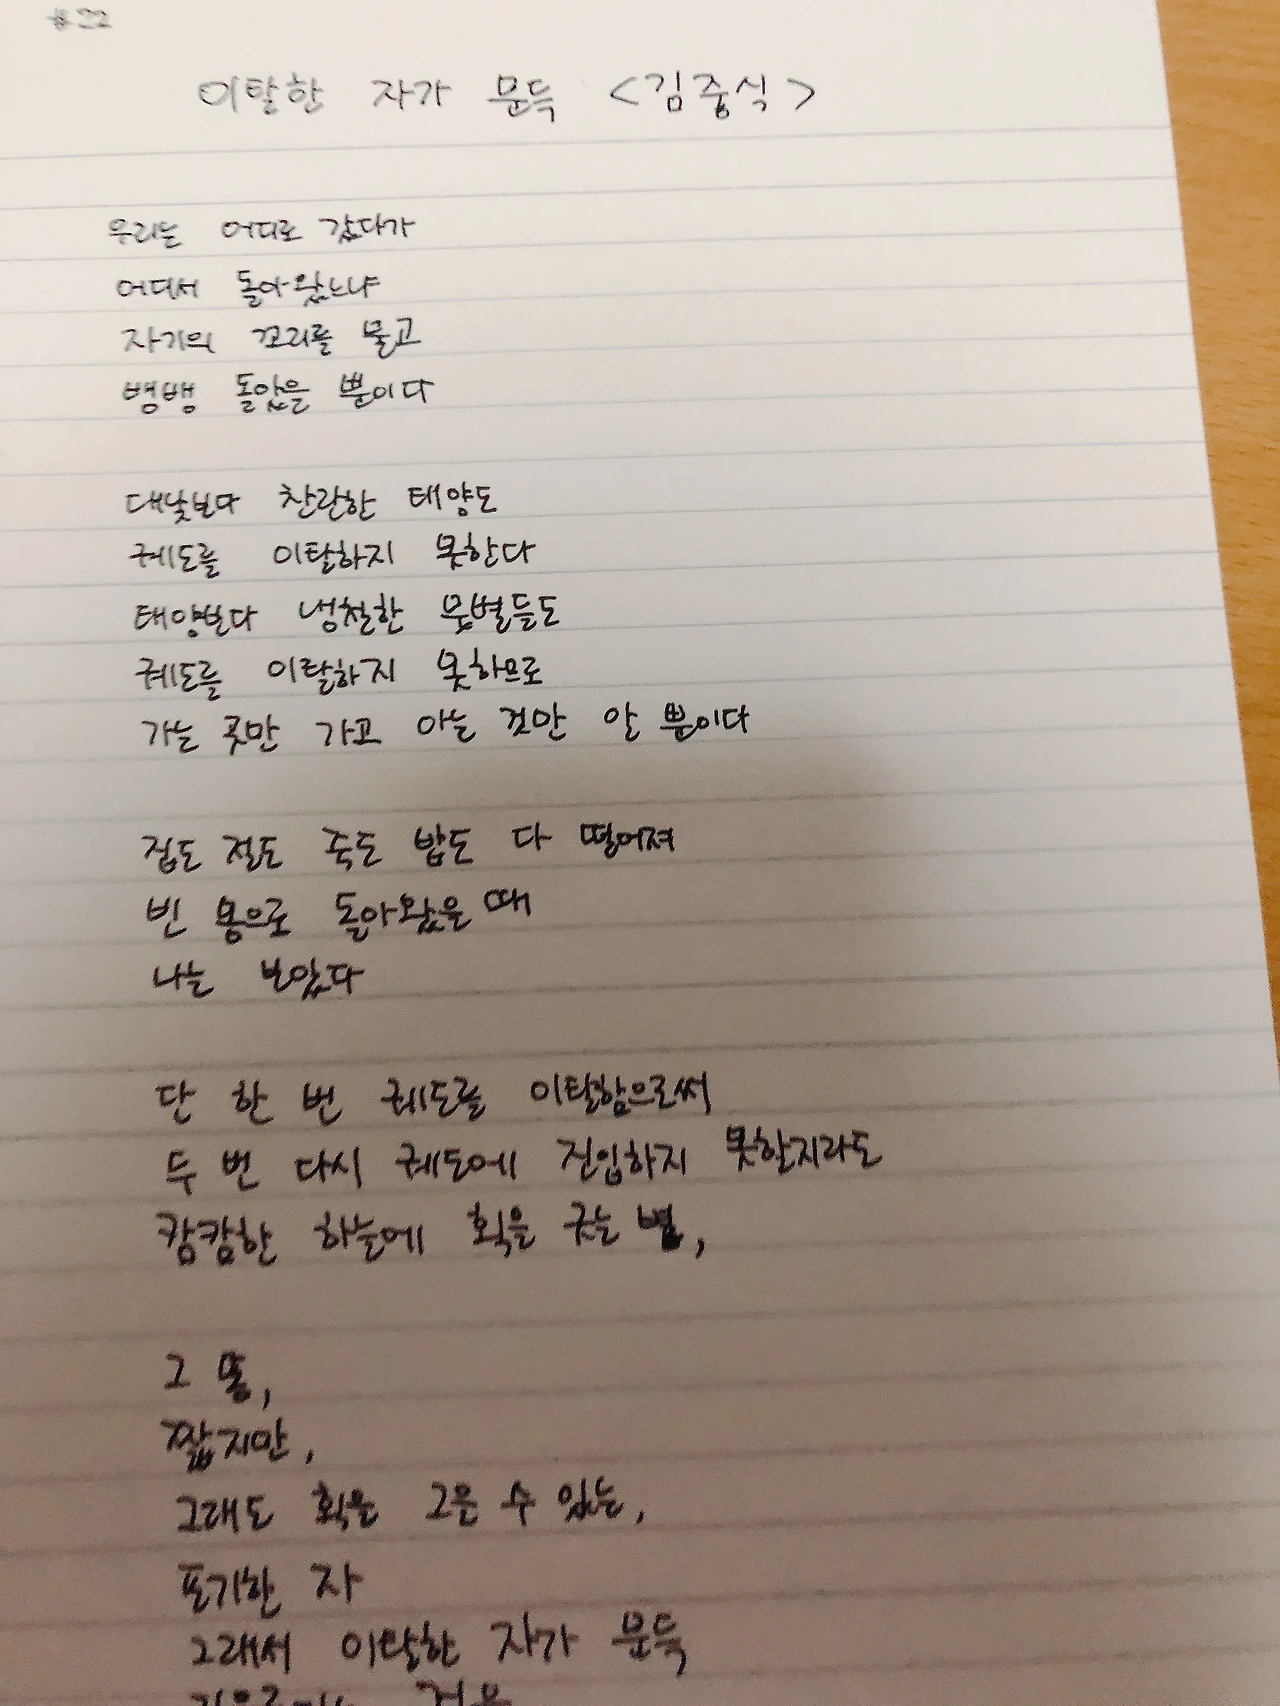 #22
이탈한 자가 문득 <김중식>
우리는 어디로 갔다가
어디서 돌아왔느냐
자기의 꼬리를 물고
뱅뱅 돌았을 뿐이다
대낮보다 찬란한 태양도
궤도를 이탈하지 못한다
태양보다 냉철한 뭇별들도
궤도를 이탈하지 못하므로
가는 곳만 가고 아는 것만 알 뿐이다
집도 절도 죽도 밥도 다 떨어져
빈 몸으로 돌아왔을 때
나는 보았다
단 한 번 궤도를 이탈함으로써
두 번 다시 궤도에 진입하지 못할지라도
캄캄한 하늘에 획을 긋는 별,
그 똥,
짧지만,
그래도 획을 그을 수 있는,
포기한 자
그래서 이탈한 자가 문득